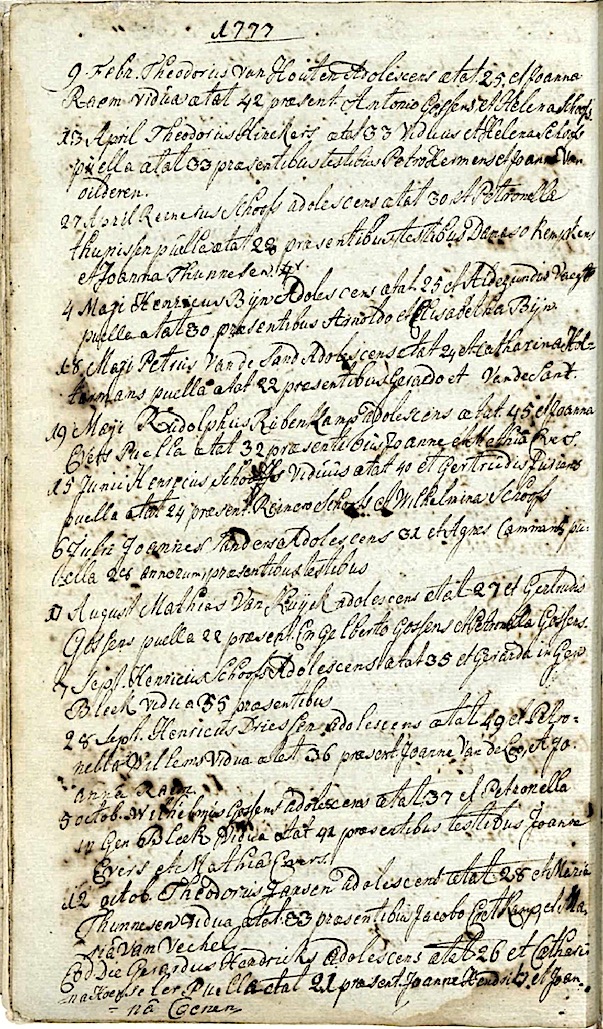 1777
9 Febr. Theodorus Van Houten Adolescens ætat 25, et Joanna
Raem vidua ætat 42 præsent Antonio Gossens et Helena Schoofs
13 April Theodorus Kinckers ætat 33 Viduus et Helena Schoofs
puella ætat 33 præsentibus testibus Petro Hermens et Joanna Van
oilderen.
27 April Reinerus Schoofs adolescens ætat 30 et Petronella
thunissen puella ætat 28 præsentibus testibus
et Joanna Thunnesen
4 Maji Henricus Bijn Adolescens ætat 25 et Aldegundis
puella ætat 30 præsentibus Arnoldo et Elisabetha Bijn
18 Maji Petrus Van de Sand Adolescens ætat 24 et Catharina Hol-
termans puella ætat 22 præsentibus Gerardo et Van de Sant.
19 Maji Rudolphus Rubenkamp adolescens ætat 45 et Joanna
Evers Puella ætat 32 præsentibus Joanne et Mathia Evers
15 Junii Henricus Schoofs Viduus ætat 40 et Gertrudis
puella ætat 24 præsent. Reinero Schoofs et Wilhelmina Schoofs
6 Julii Joannes Sanders Adolescens 31 et Agnes Cammans pu-
ella 26 annorum præsentibus testibus
August Mathias Van Kuijck adolescens ætat 27 et Gertrudis
Gossens puella 22 præsent. Engelberto Gossens et Petronella Gossens.
7 Sept. Henricus Schoofs Adolescens ætat 35 et Gerarda in Gen
Bleek vidua 35 præsentibus
28 Sept. Henricus Driessen adolescens ætat 49 et Petro-
nella Willems Vidua ætat 36 præsent Joanne Van de Loo et Jo-
anna Raem
5 octob. Wilhelmus Gossens adolescens ætat 37 et Petronella
in Gen Bleek Vidua ætat 42 præsentibus testibus Joanne
Evers et Mathia Evers.
12 octob. Theodorus Jansen adolescens ætat 28 et Maria
Thunnesen vidua ætat 33 præsentibus Jacobo et Ma-
ria Van Vechel
Eod Die Gerardus Hendricks adolescens ætat 26 et Cathari-
na Puella ætat 21 præsent. Joanne Hendricks et Joan-
na Coenen